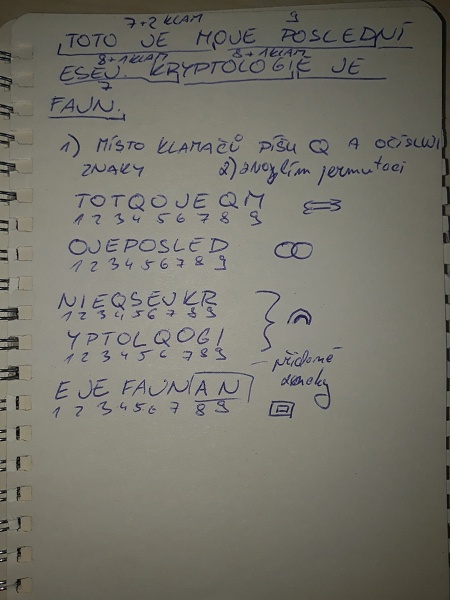 7+2 KLAM 9
TOTO JE MOJE POSLEDNÍ
8+1KLAM 8+1KLAM
ESEJ. KRYPTOLOGIE JE
7
FAJN.
1) MÍSTO KLAMAČŮ PÍŠU Q A OČÍSLUJI
ZNAKY 2) zvolím permutaci
TOTQOJEQM
1 2 3 4 5 6 7 8 9
OJEPOSLED
1 2 3 4 5 6 7 8 9
NIEQSEJKR
1 2 3 4 5 6 7 8 9
YPTOLQOGI
1 2 3 4 5 6 7 8 9
přidané
znaky
EJEFAJNAN
1 2 3 4 5 6 7 8 9